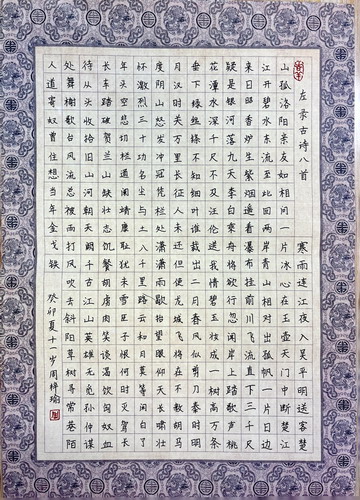 左录古诗八首 寒雨连江夜入吴平明送客楚
山孤洛阳亲友如相问一片冰心在玉壶天门中断楚江
江开碧水东流至此回两岸青山相对出孤帆一片日边
来日照香炉生紫烟遥看瀑布挂前川飞流直下三千尺
疑是银河落九天李白乘舟将欲行忽闻岸上踏歌声桃
花潭水深千尺不及汪伦送我情碧玉妆成一树高万条
垂下绿丝绦不知细叶谁裁出二月春风似剪刀秦时明
月汉时关万里长征人未还但使龙城飞将在不教胡马
度阴山怒发冲冠凭栏处潇潇雨歇抬望眼仰天长啸壮
怀激烈三十功名尘与土八千里路云和月莫等闲白了
年头空悲切靖康耻犹未雪臣子恨何时灭驾长
长车踏破贺兰山缺壮志饥餐胡虏肉笑谈渴饮匈奴血
待从头收拾旧山河朝天阙千古江山英雄无觅孙仲谋
处舞榭歌台风流总被雨打风吹去斜阳草树寻常巷陌
人道寄奴曾住想当年金戈铁
癸卯夏十一岁周梓瑜